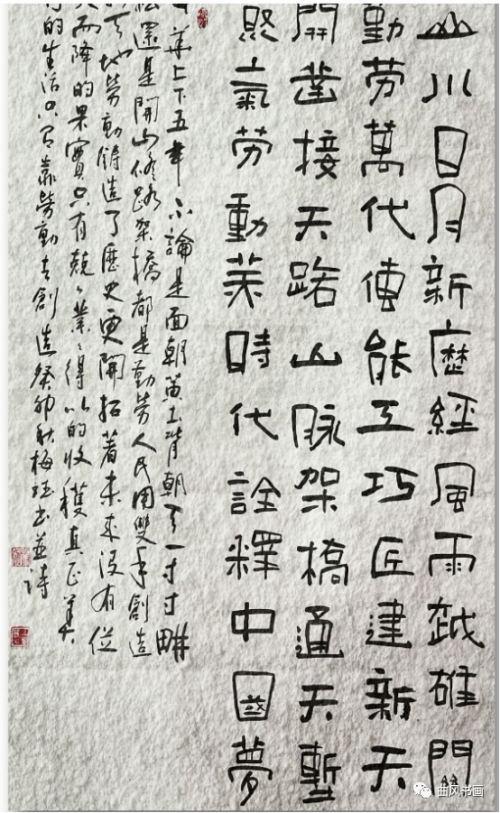 山川日月新歷經風雨越雄關
勤勞萬代傳能工巧匠建新天
開鑿接天路山脉架橋通天塹
聚氣勞動美時代詮釋中國夢
華上下五年不論是面朝黃土背朝天一寸寸畊
耘還是開山修路架橋都是勤勞人民用雙手創造
天地勞動鑄造了歷史更開拓着未來沒有從
天而降的果實只有兢〻業〻得以的收穫真正美
的生活只有靠勞動去創造癸卯秋梅書並詩
曲风书画